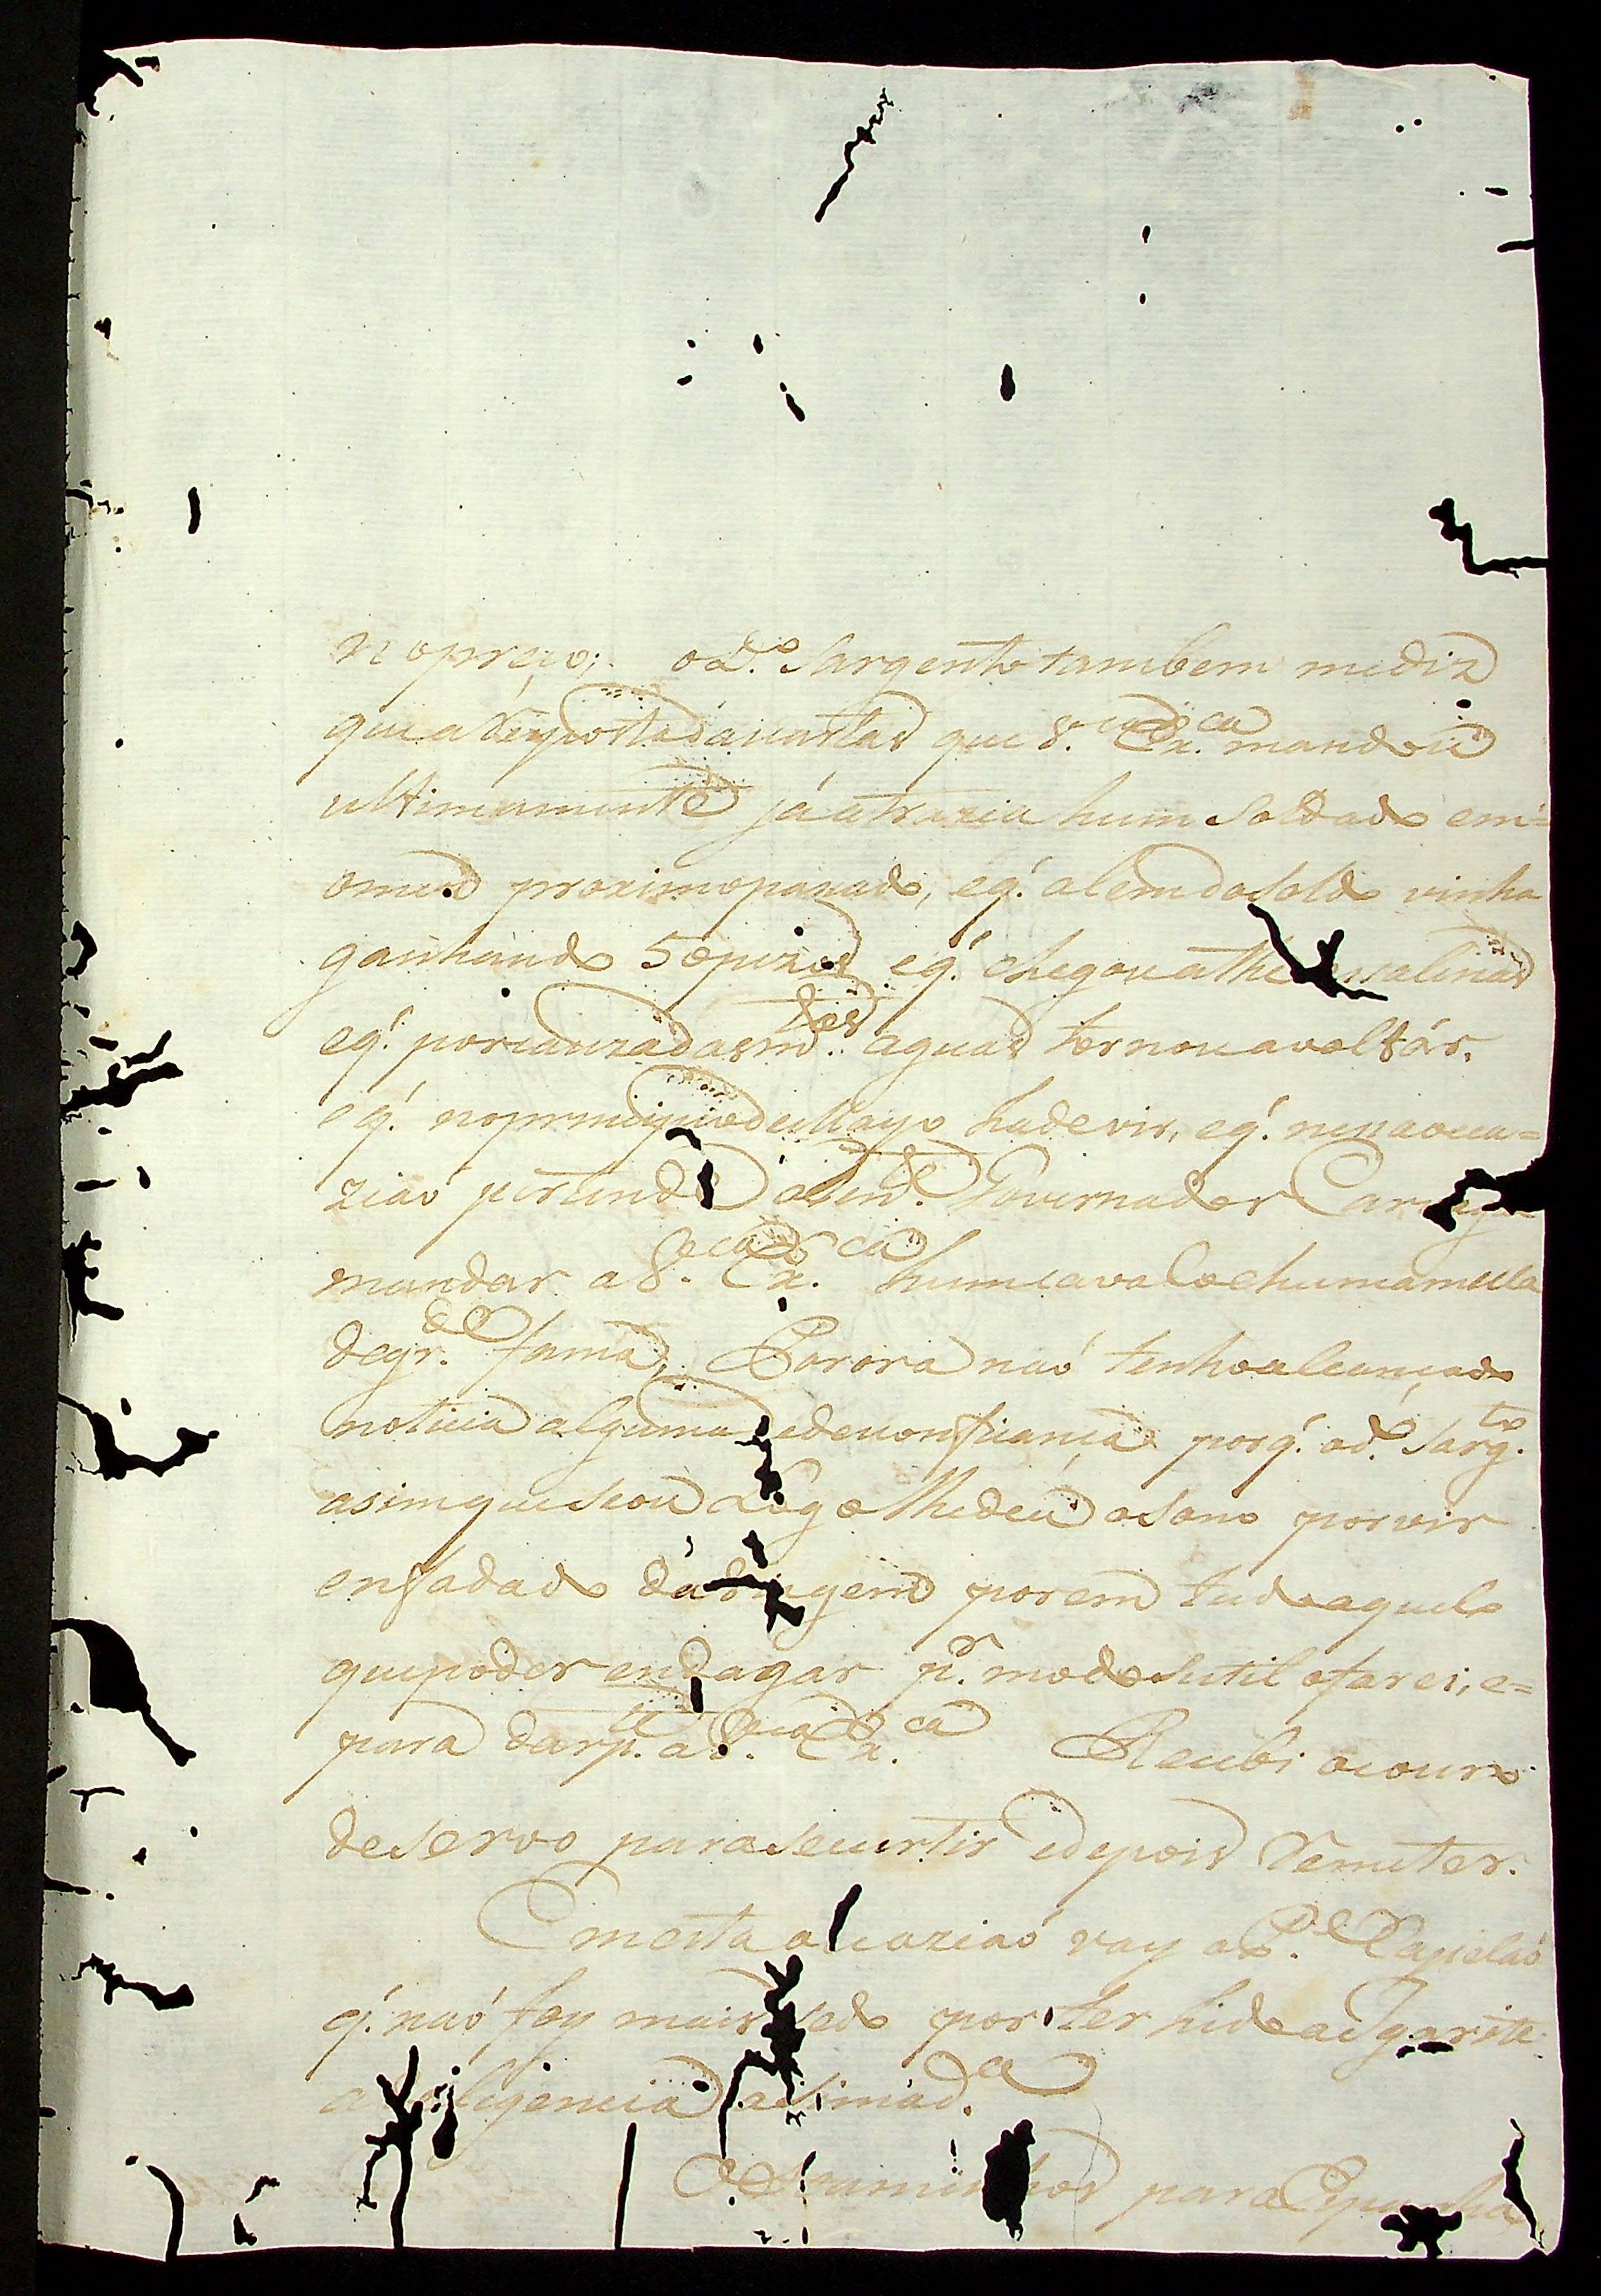 no preço; o d.º Sargento tambem mediz
que a Resposta da carta que V. Ex.ca mandou
ultimamente já atrazia hum Soldado em=
omes proximopazado, eq.' alem do soldo vinha
ganhando 50 pezos eq.' chegou athe salinas
eq.' porcauzadasm.tas aguas tornouavoltár.
eq.' noprincipiodeMayo hadevir, eq.' nesaoca=
ziaó pertende Governador
mandar a V. Ex.ca humcavaloehumamulla
degr.de fama, Porora naó tenhoalcançado
noticia alguma edeconfiança porq.' od.º Sarg.to
asimqueseou Logo lhedeu osono porvir
enfadado daviagem porem tudoaquelo
quepoder endagar p.r modosutil ofarei, e=
para darp.te a V. Ex.ca Recibi ocouro
deservo parasecurtir edepois Remeter.
Emesta ocaziaó vay oP.e Capelaó
q.' naó foy mais sedo por ter hido a Igarite
a deligencia asimad.a
Os caminhos para Espanha